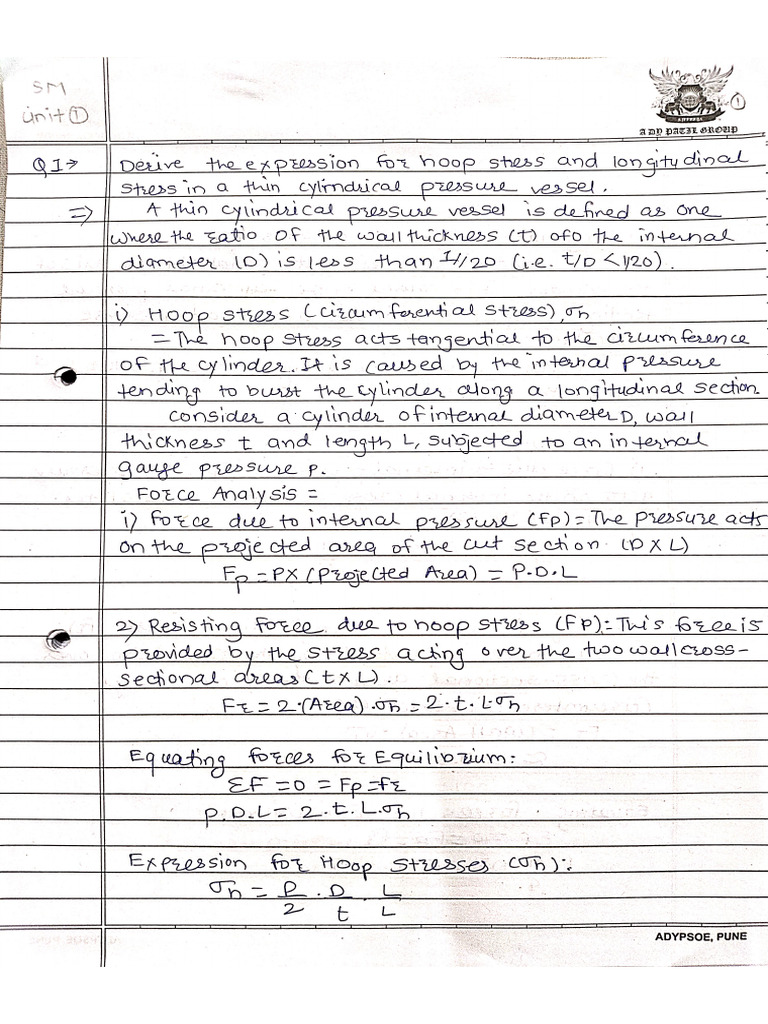 SM
Unit ①
ADYPSOE
①
ADY PATIL GROUP
Q1⇒ Derive the expression for hoop stress and longitudinal
stress in a thin cylindrical pressure vessel.
⇒ A thin cylindrical pressure vessel is defined as one
where the ratio of the wall thickness (t) ofo the internal
diameter (D) is less than 1/20 (i.e. t/D <1/20).
i) Hoop stress (circumferential stress), σh
= The hoop stress acts tangential to the circumference
of the cylinder. It is caused by the internal pressure
tending to burst the cylinder along a longitudinal section
consider a cylinder of internal diameter D, wall
thickness t and length L, subjected to an internal
gauge pressure p.
Force Analysis =
i) Force due to internal pressure (Fp) = The pressure acts
on the projected area of the cut section (D X L)
Fp = PX (Projected Area) = P.D.L
2) Resisting Force due to hoop stress (Fp) = This force is
provided by the stress acting over the two wall cross-
sectional areas (t X L).
Fr = 2.(Area).σh = 2.t.L.σh
Equating forces for Equilibrium:
ΣF = 0 = Fp = fr
p.D.L = 2.t.L.σh
Expression for Hoop Stresses (σh):
σh = P/2 . D/t . L/L
ADYPSOE, PUNE